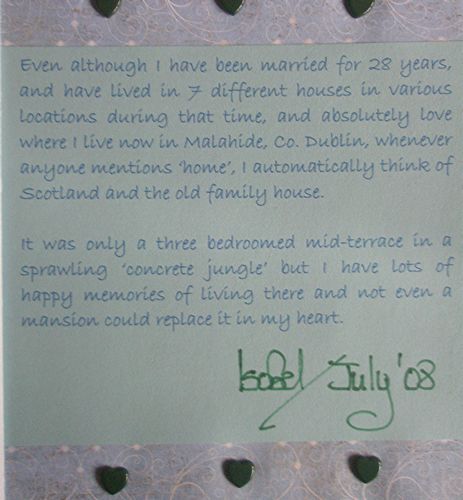 Even although I have been married for 28 years,
and have lived in 7 different houses in various
locations during that time, and absolutely love
where I live now in Malahide, Co. Dublin, whenever
anyone mentions 'home', I automatically think of
Scotland and the old family house.
It was only a three bedroomed mid-terrace in a
sprawling 'concrete jungle' but I have lots of
happy memories of living there and not even a
mansion could replace it in my heart.
Isobel / July '08